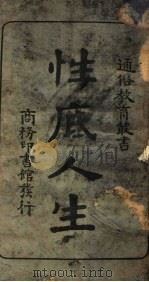 通俗教育叢書
性底人生
商務印書館發行
mtoou.info yndoo.com